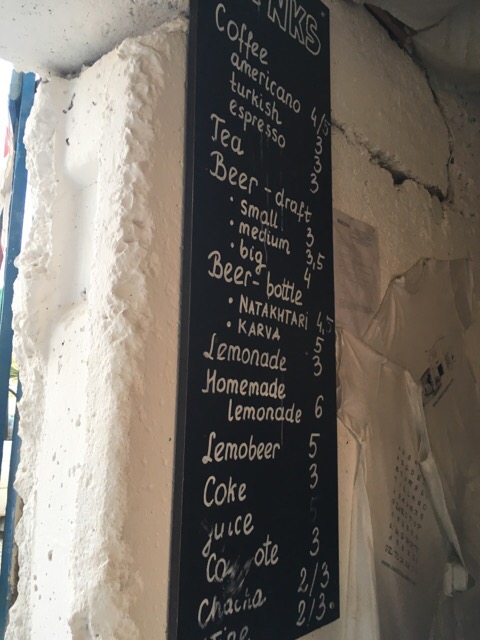 NKS
Coffee
americano 4/5
turkish 3
espresso 3
Tea 3
Beer-draft
• small 3
• medium 3,5
• big 4
Beer-bottle
• NATAKHTARI 4,5
• KARVA 5
Lemonade 3
Homemade
lemonade 6
Lemobeer 5
Coke 3
juice 5
3
2/3
2/3